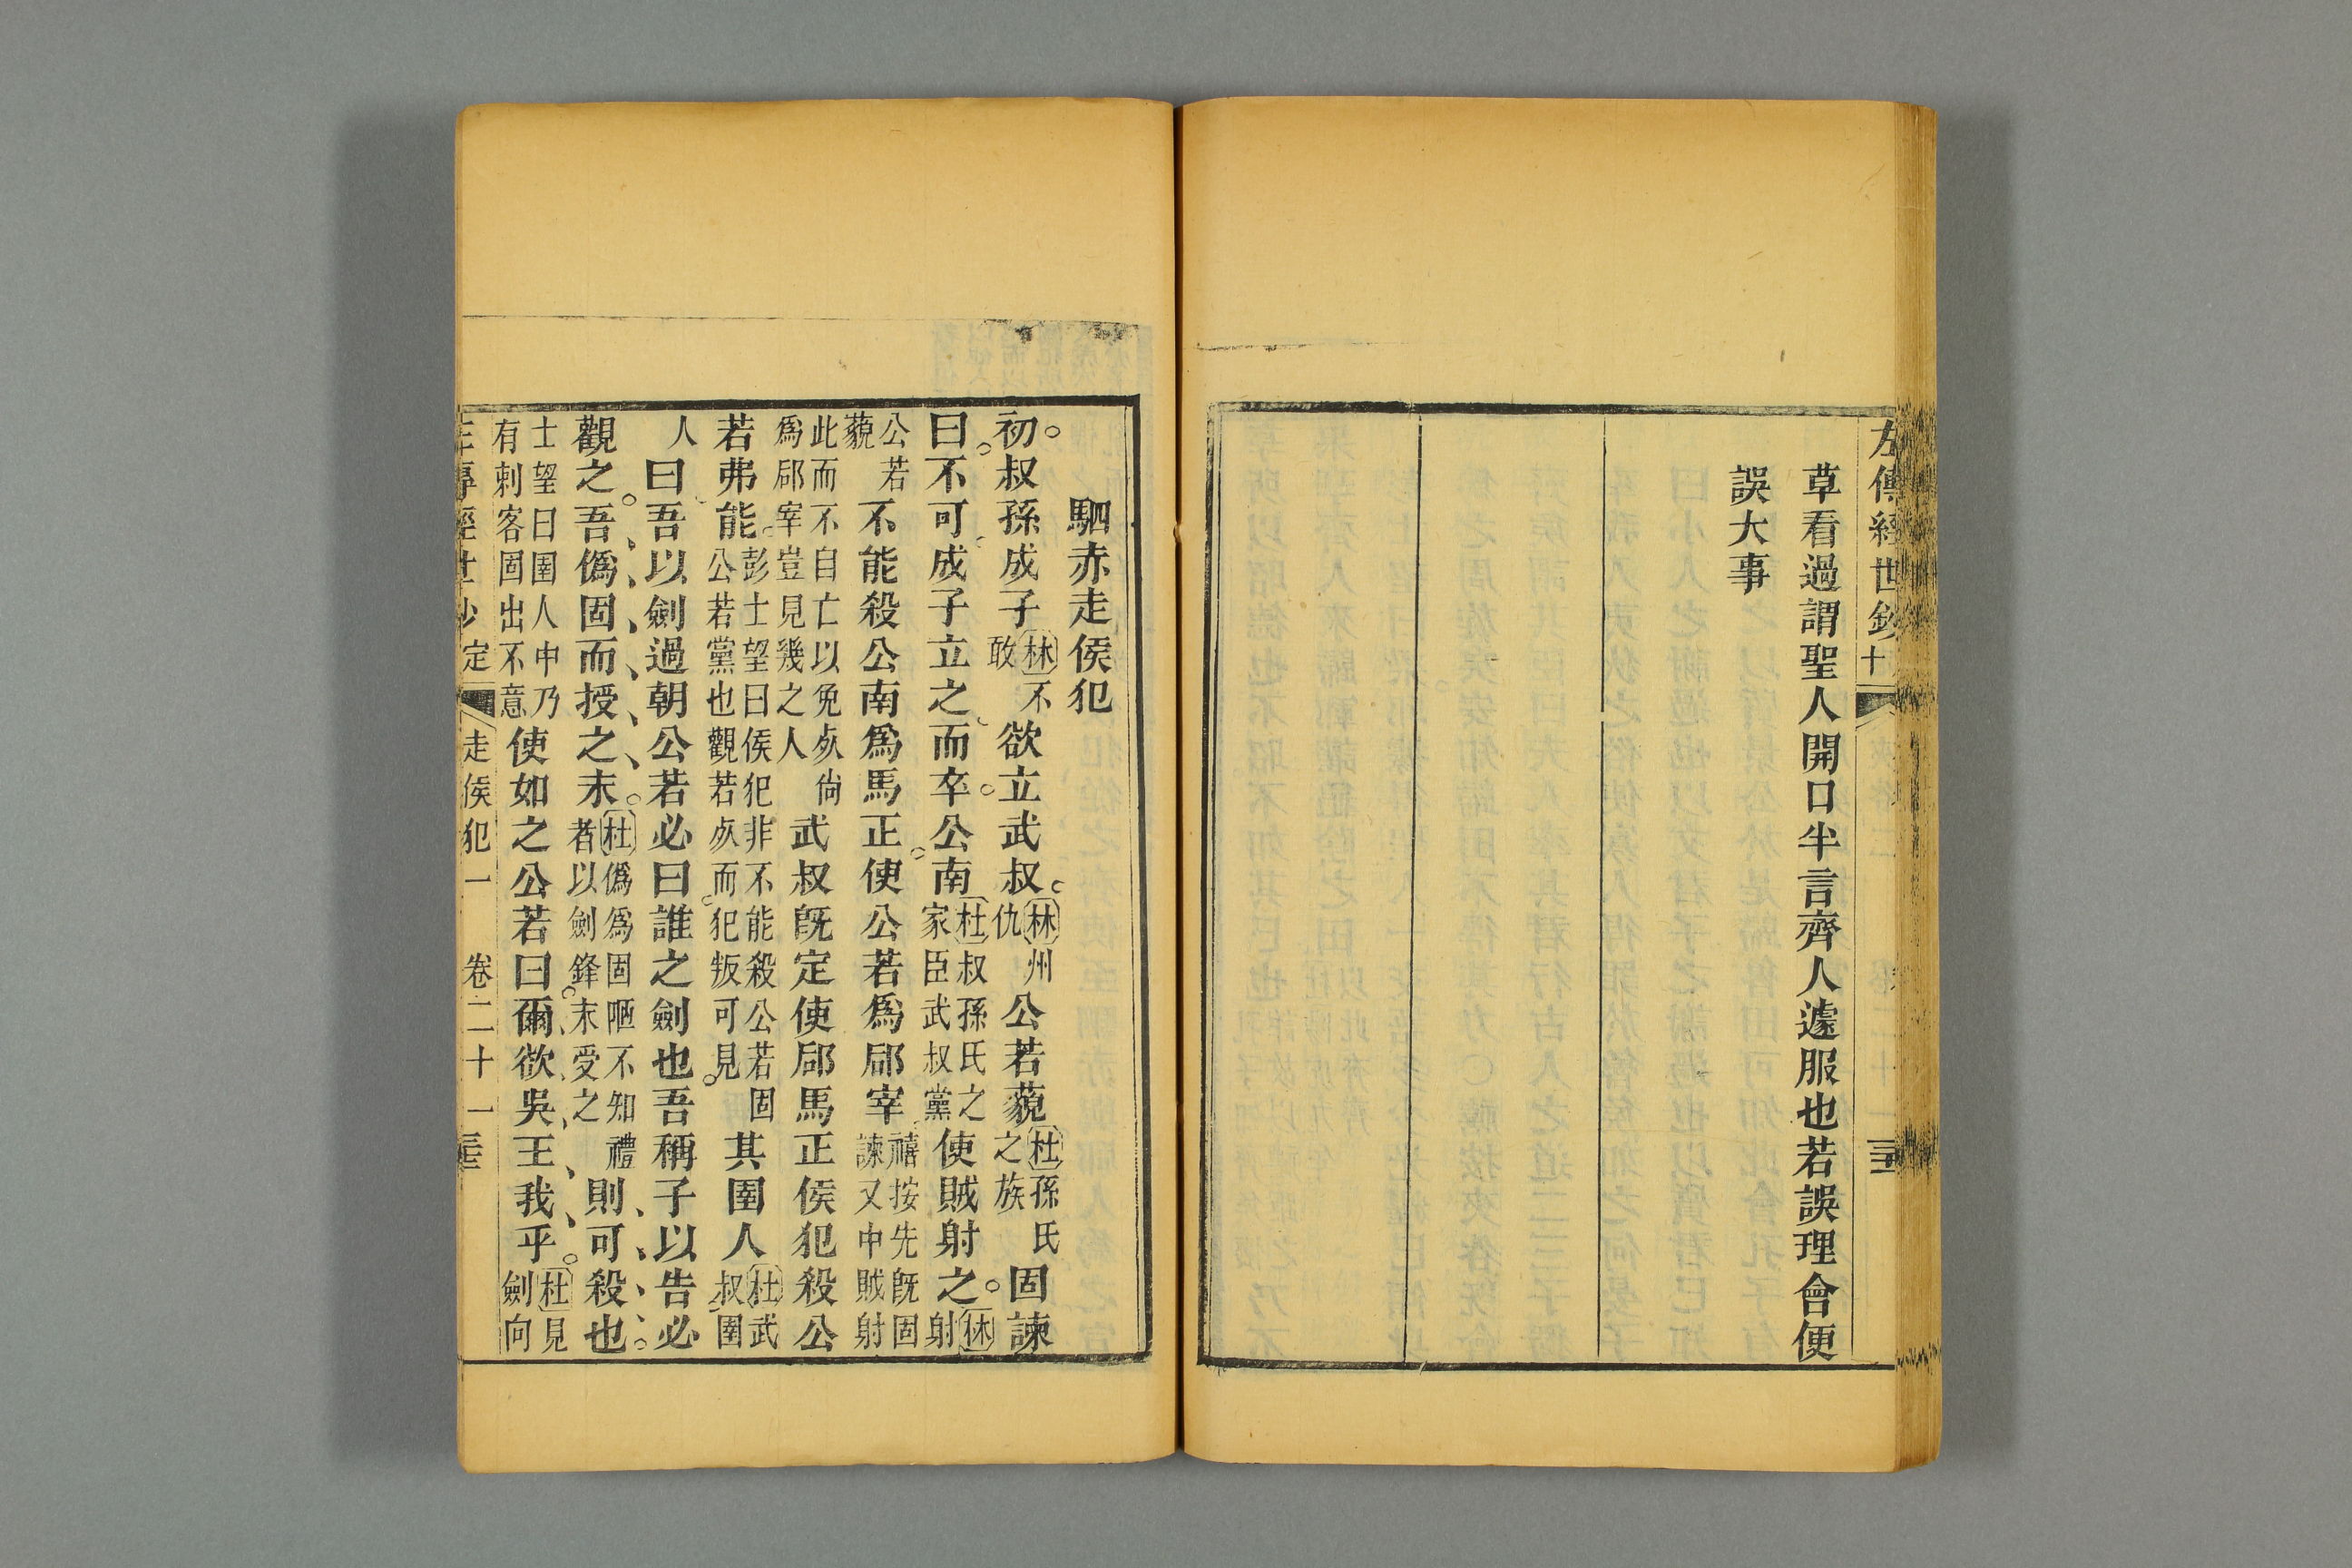 左傳經世鈔
草看過謂聖人開口半言齊人遽服也若誤理會便
誤大事
駟赤走侯犯
初叔孫成子林不敢欲立武叔林州仇公若藐杜孫氏之族固諫
曰不可成子立之而卒公南杜叔孫氏之家臣武叔黨使賊射之林射
公若藐不能殺公南爲馬正使公若爲郈宰禧按先旣固諫又中賊射
此而不自亡以免死尙爲郈宰豈見幾之人武叔旣定使郈馬正侯犯殺公
若弗能彭士望曰侯犯非不能殺公若固公若黨也觀若死而犯叛可見其圉人杜武叔圉
人曰吾以劍過朝公若必曰誰之劍也吾稱子以告必
觀之吾僞固而授之末杜僞爲固陋不知禮者以劍鋒末受之則可殺也
士望曰圉人中乃有刺客固出不意使如之公若曰爾欲吳王我乎杜見劍向
定 走侯犯一 卷二十一